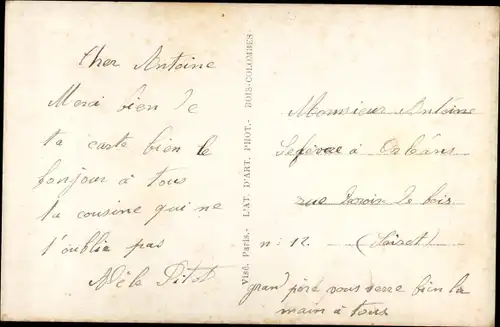 Cher Antoine
Merci bien de
ta carte bien le
bonjour à tous
ta cousine qui ne
t'oublie pas
Adèla Pitot
Visé. Paris.- L'AT. D'ART. PHOT.- BOIS-COLOMBES
Monsieur Antoine
Lefévre à Orléans
rue Daroin Le bois
n: 12. (Loiret)
gran père vous serre bien la
main à tous